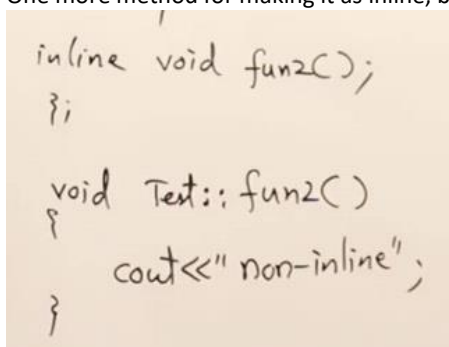 One more method for making it as inline, b
inline void fun2();
};
void Test:: fun2()
{
cout<<" non-inline";
}